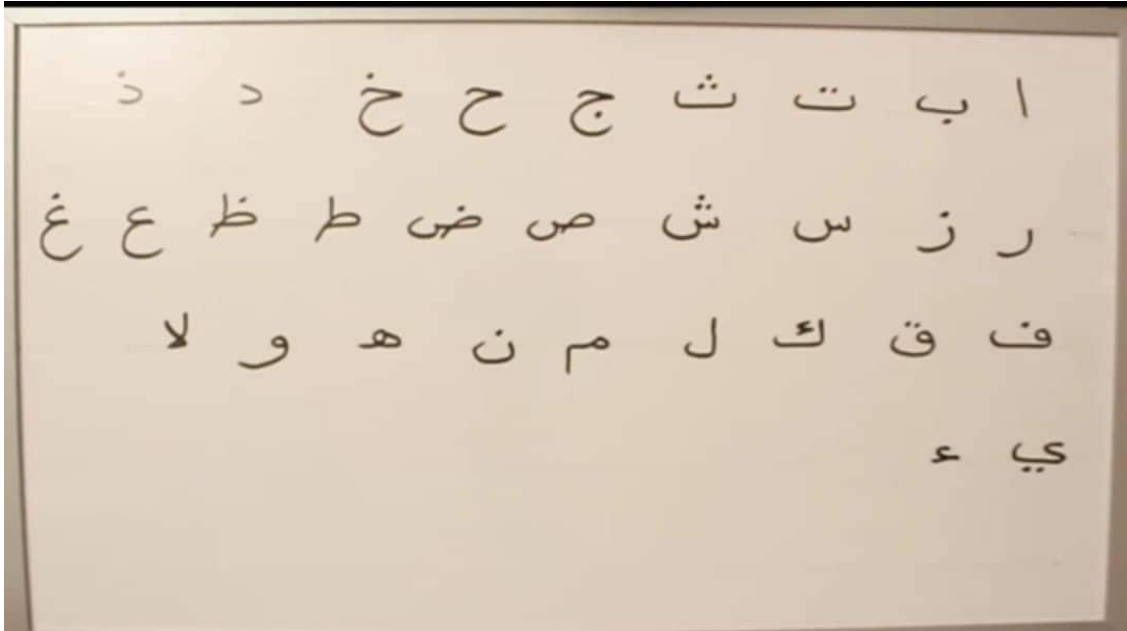 ا ب ت ث ج ح خ د ذ
ر ز س ش ص ض ط ظ ع غ
ف ق ك ل م ن ه و لا
ي ء